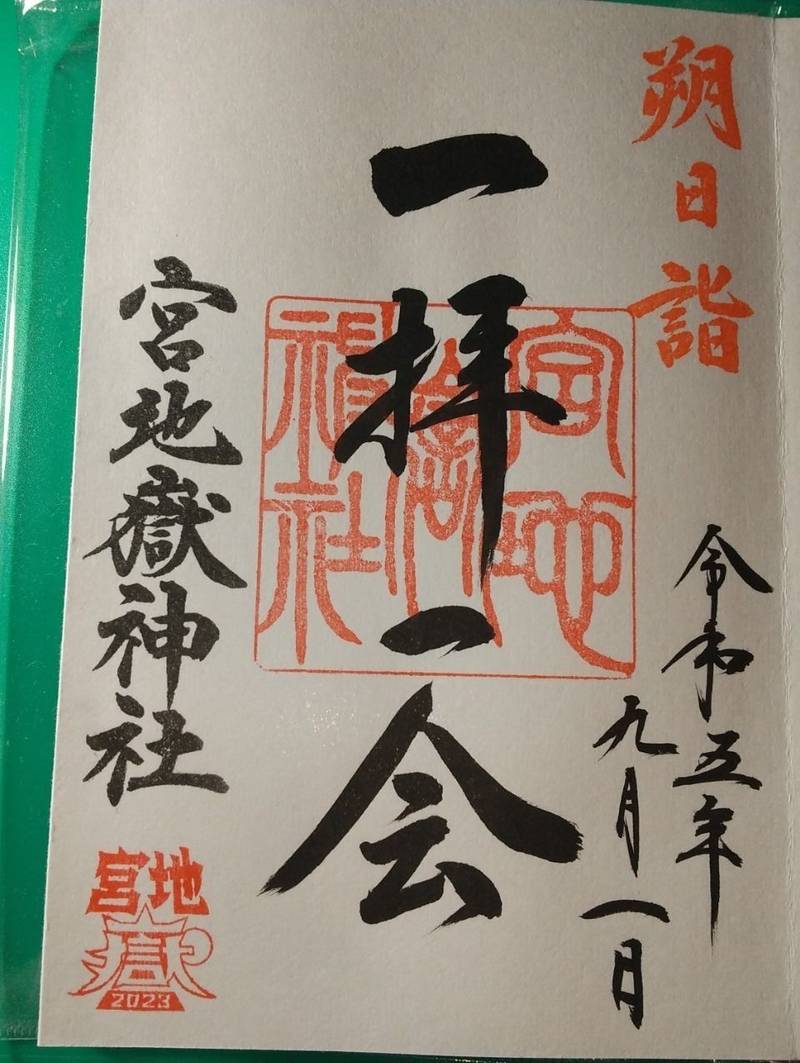 朔日詣
令和五年
九月一日
一拝一会
宮地嶽神社
宮地嶽神社
宮地
嶽
2023